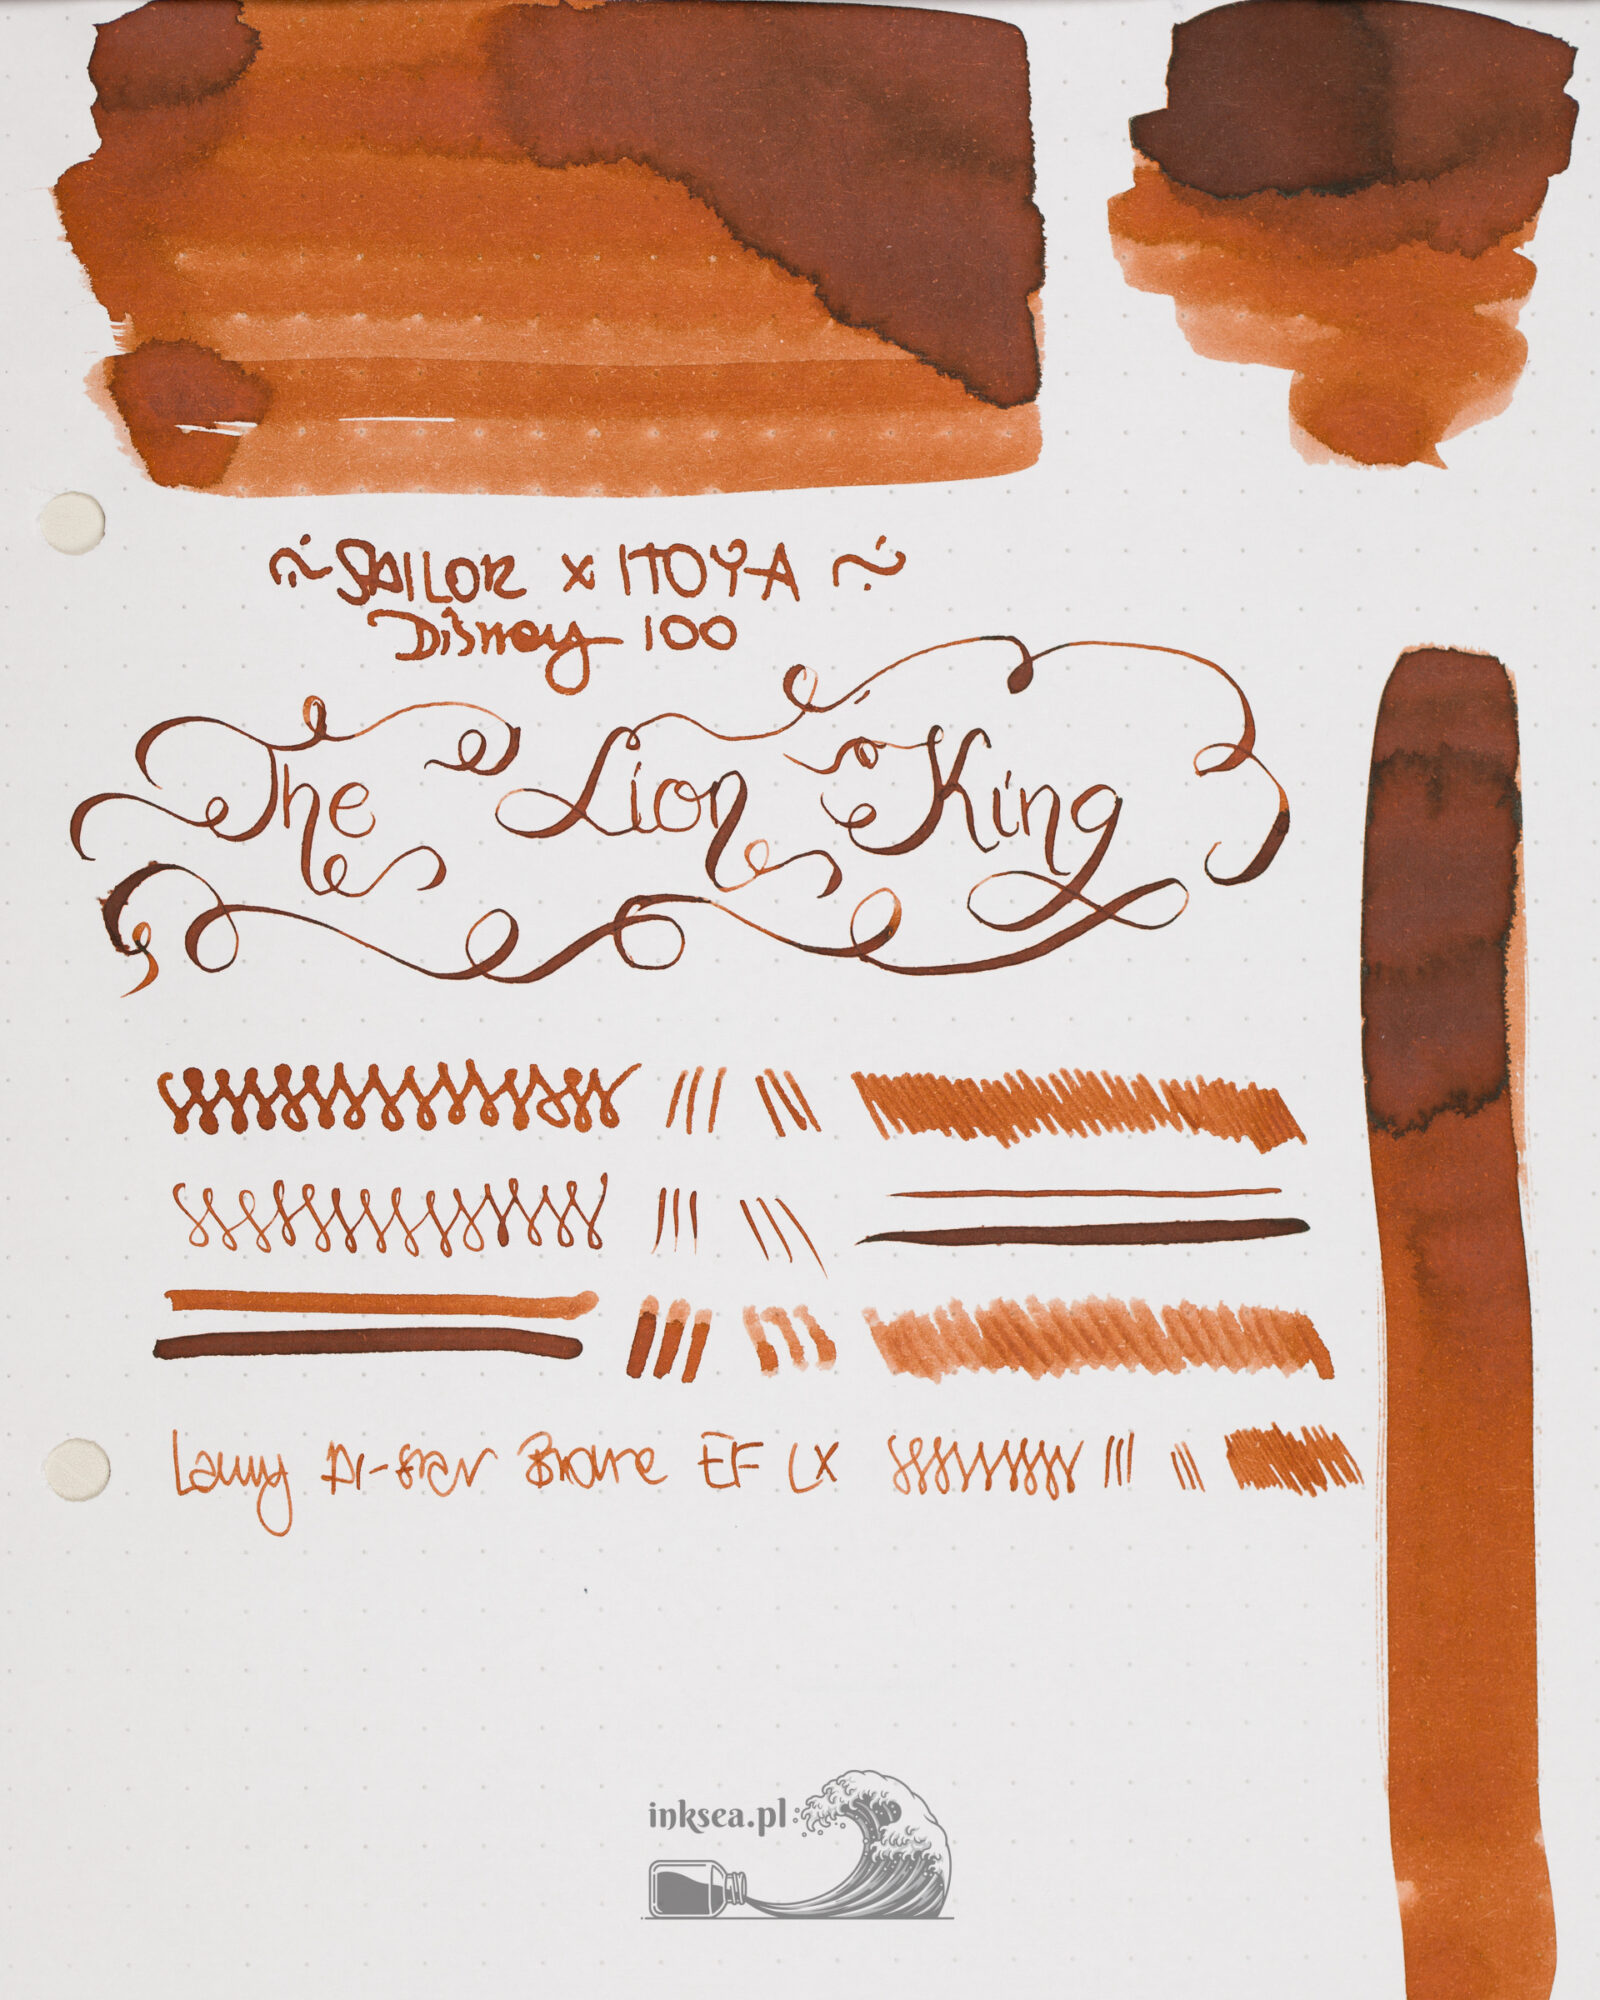 ~SAILOR x ITOYA~
Disney 100
The Lion King
Lamy Al-star Bronze EF LX
inksea.pl